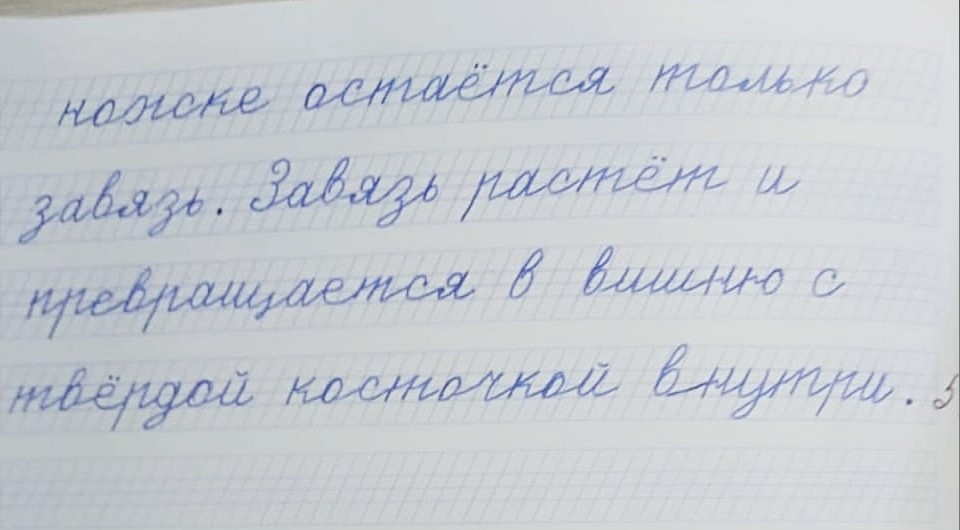 ножке остаётся только
завязь. Завязь растёт и
превращается в вишню с
твёрдой косточкой внутри. 5